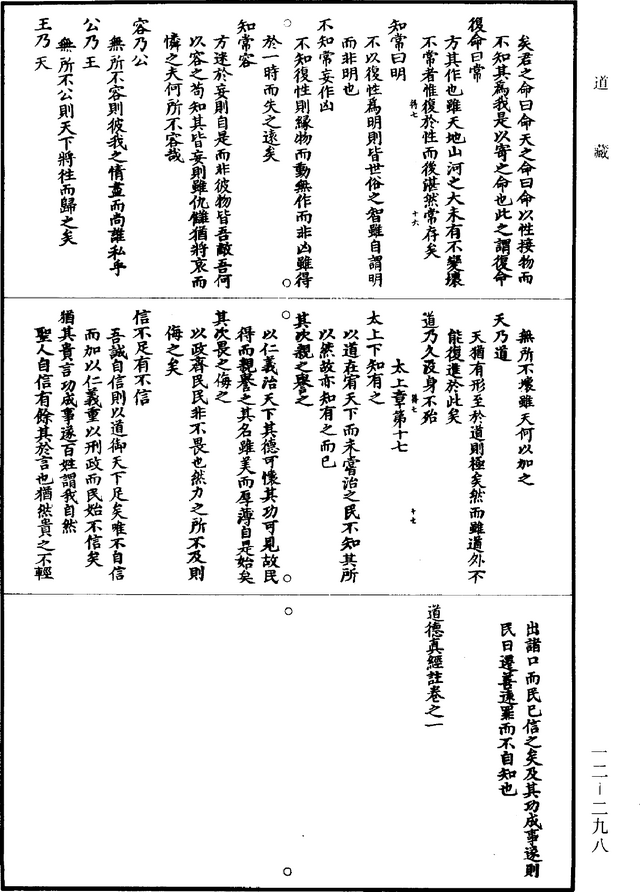 道藏
矣君之命曰命天之命曰命以性接物而
不知其為我是以寄之命也此之謂復命
復命曰常
方其作也雖天地山河之大未有不變壞
不常者惟復於性而後湛然常存矣
十六
知常曰明
不以復性為明則皆世俗之智雖自謂明
而非明也
不知常妄作凶
不知復性則緣物而動無作而非凶雖得
於一時而失之遠矣
知常容
方迷於妄則自是而非彼物皆吾敵吾何
以容之苟知其皆妄則雖仇讎猶將哀而
憐之夫何所不容哉
容乃公
無所不容則彼我之情盡而尚誰私乎
公乃王
無所不公則天下將往而歸之矣
王乃天
無所不壞雖天何以加之
天乃道
天猶有形至於道則極矣然而雖道外不
能復進於此矣
道乃久沒身不殆
十七
太上章第十七
太上下知有之
以道在宥天下而未嘗治之民不知其所
以然故亦知有之而已
其次親之譽之
以仁義治天下其德可懷其功可見故民
得而親譽之其名雖美而厚薄自是始矣
其次畏之侮之
以政齊民民非不畏也然力之所不及則
侮之矣
信不足有不信
吾誠自信則以道御天下足矣唯不自信
而加以仁義重以刑政而民始不信矣
猶其貴言功成事遂百姓謂我自然
聖人自信有餘其於言也猶然貴之不輕
出諸口而民已信之矣及其功成事遂則
民日遷善遠罪而不自知也
道德真經註卷之一
一二—二九八